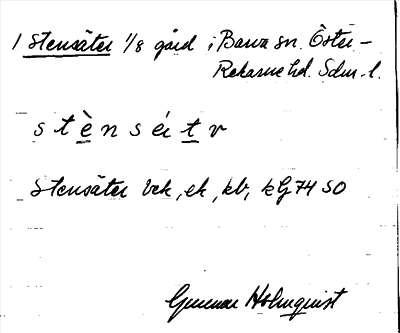 1 Stensäter 1/8 gård i Barva sn. Öster-
Rekarne hd. Sdm. l.
s t è n s é t v
Stensäter bek, ek, kb, kG 74 SO
Gunnar Holmquist